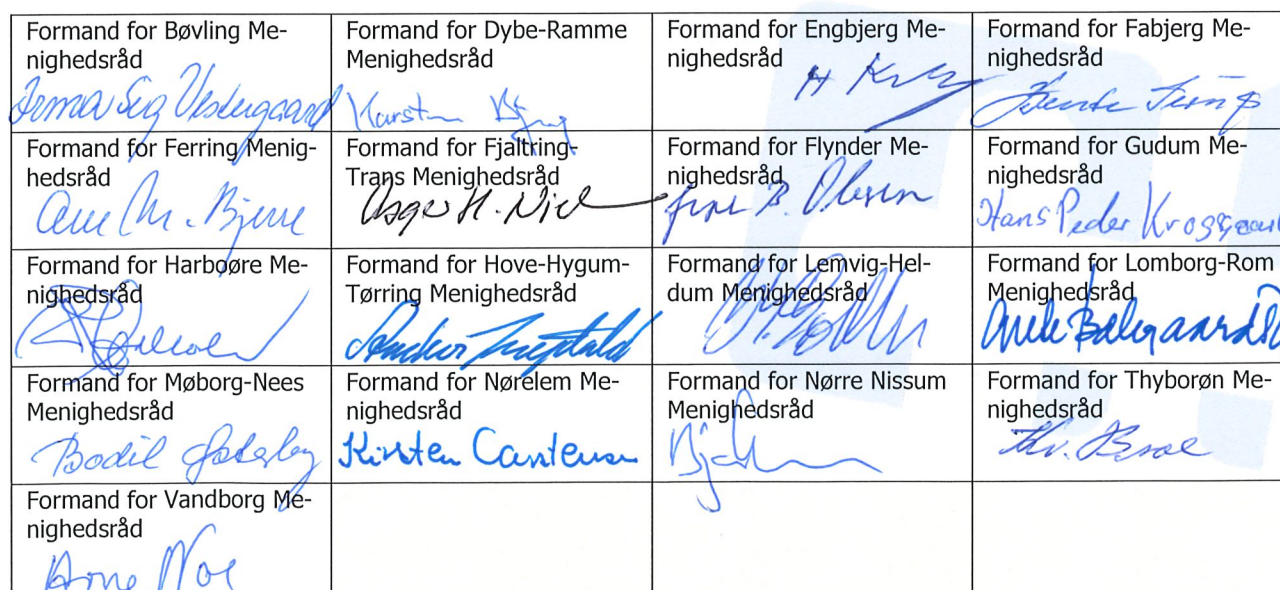 Formand for Bøvling Me-
nighedsråd
Vestergaard
Formand for Dybe-Ramme
Menighedsråd
Karsten
Formand for Engbjerg Me-
nighedsråd
H
Formand for Fabjerg Me-
nighedsråd
Bente
Formand for Ferring Menig-
hedsråd
M. Bjerre
Formand for Fjaltring-
Trans Menighedsråd
Asger H. Niel
Formand for Flynder Me-
nighedsråd
B. Olesen
Formand for Gudum Me-
nighedsråd
Hans Peder Kroggaard
Formand for Harboøre Me-
nighedsråd
Formand for Hove-Hygum-
Tørring Menighedsråd
Formand for Lemvig-Hel-
dum Menighedsråd
Formand for Lomborg-Rom
Menighedsråd
Formand for Møborg-Nees
Menighedsråd
Bodil
Formand for Nørelem Me-
nighedsråd
Kirsten Carstensen
Formand for Nørre Nissum
Menighedsråd
Formand for Thyborøn Me-
nighedsråd
Formand for Vandborg Me-
nighedsråd
Arne Noe